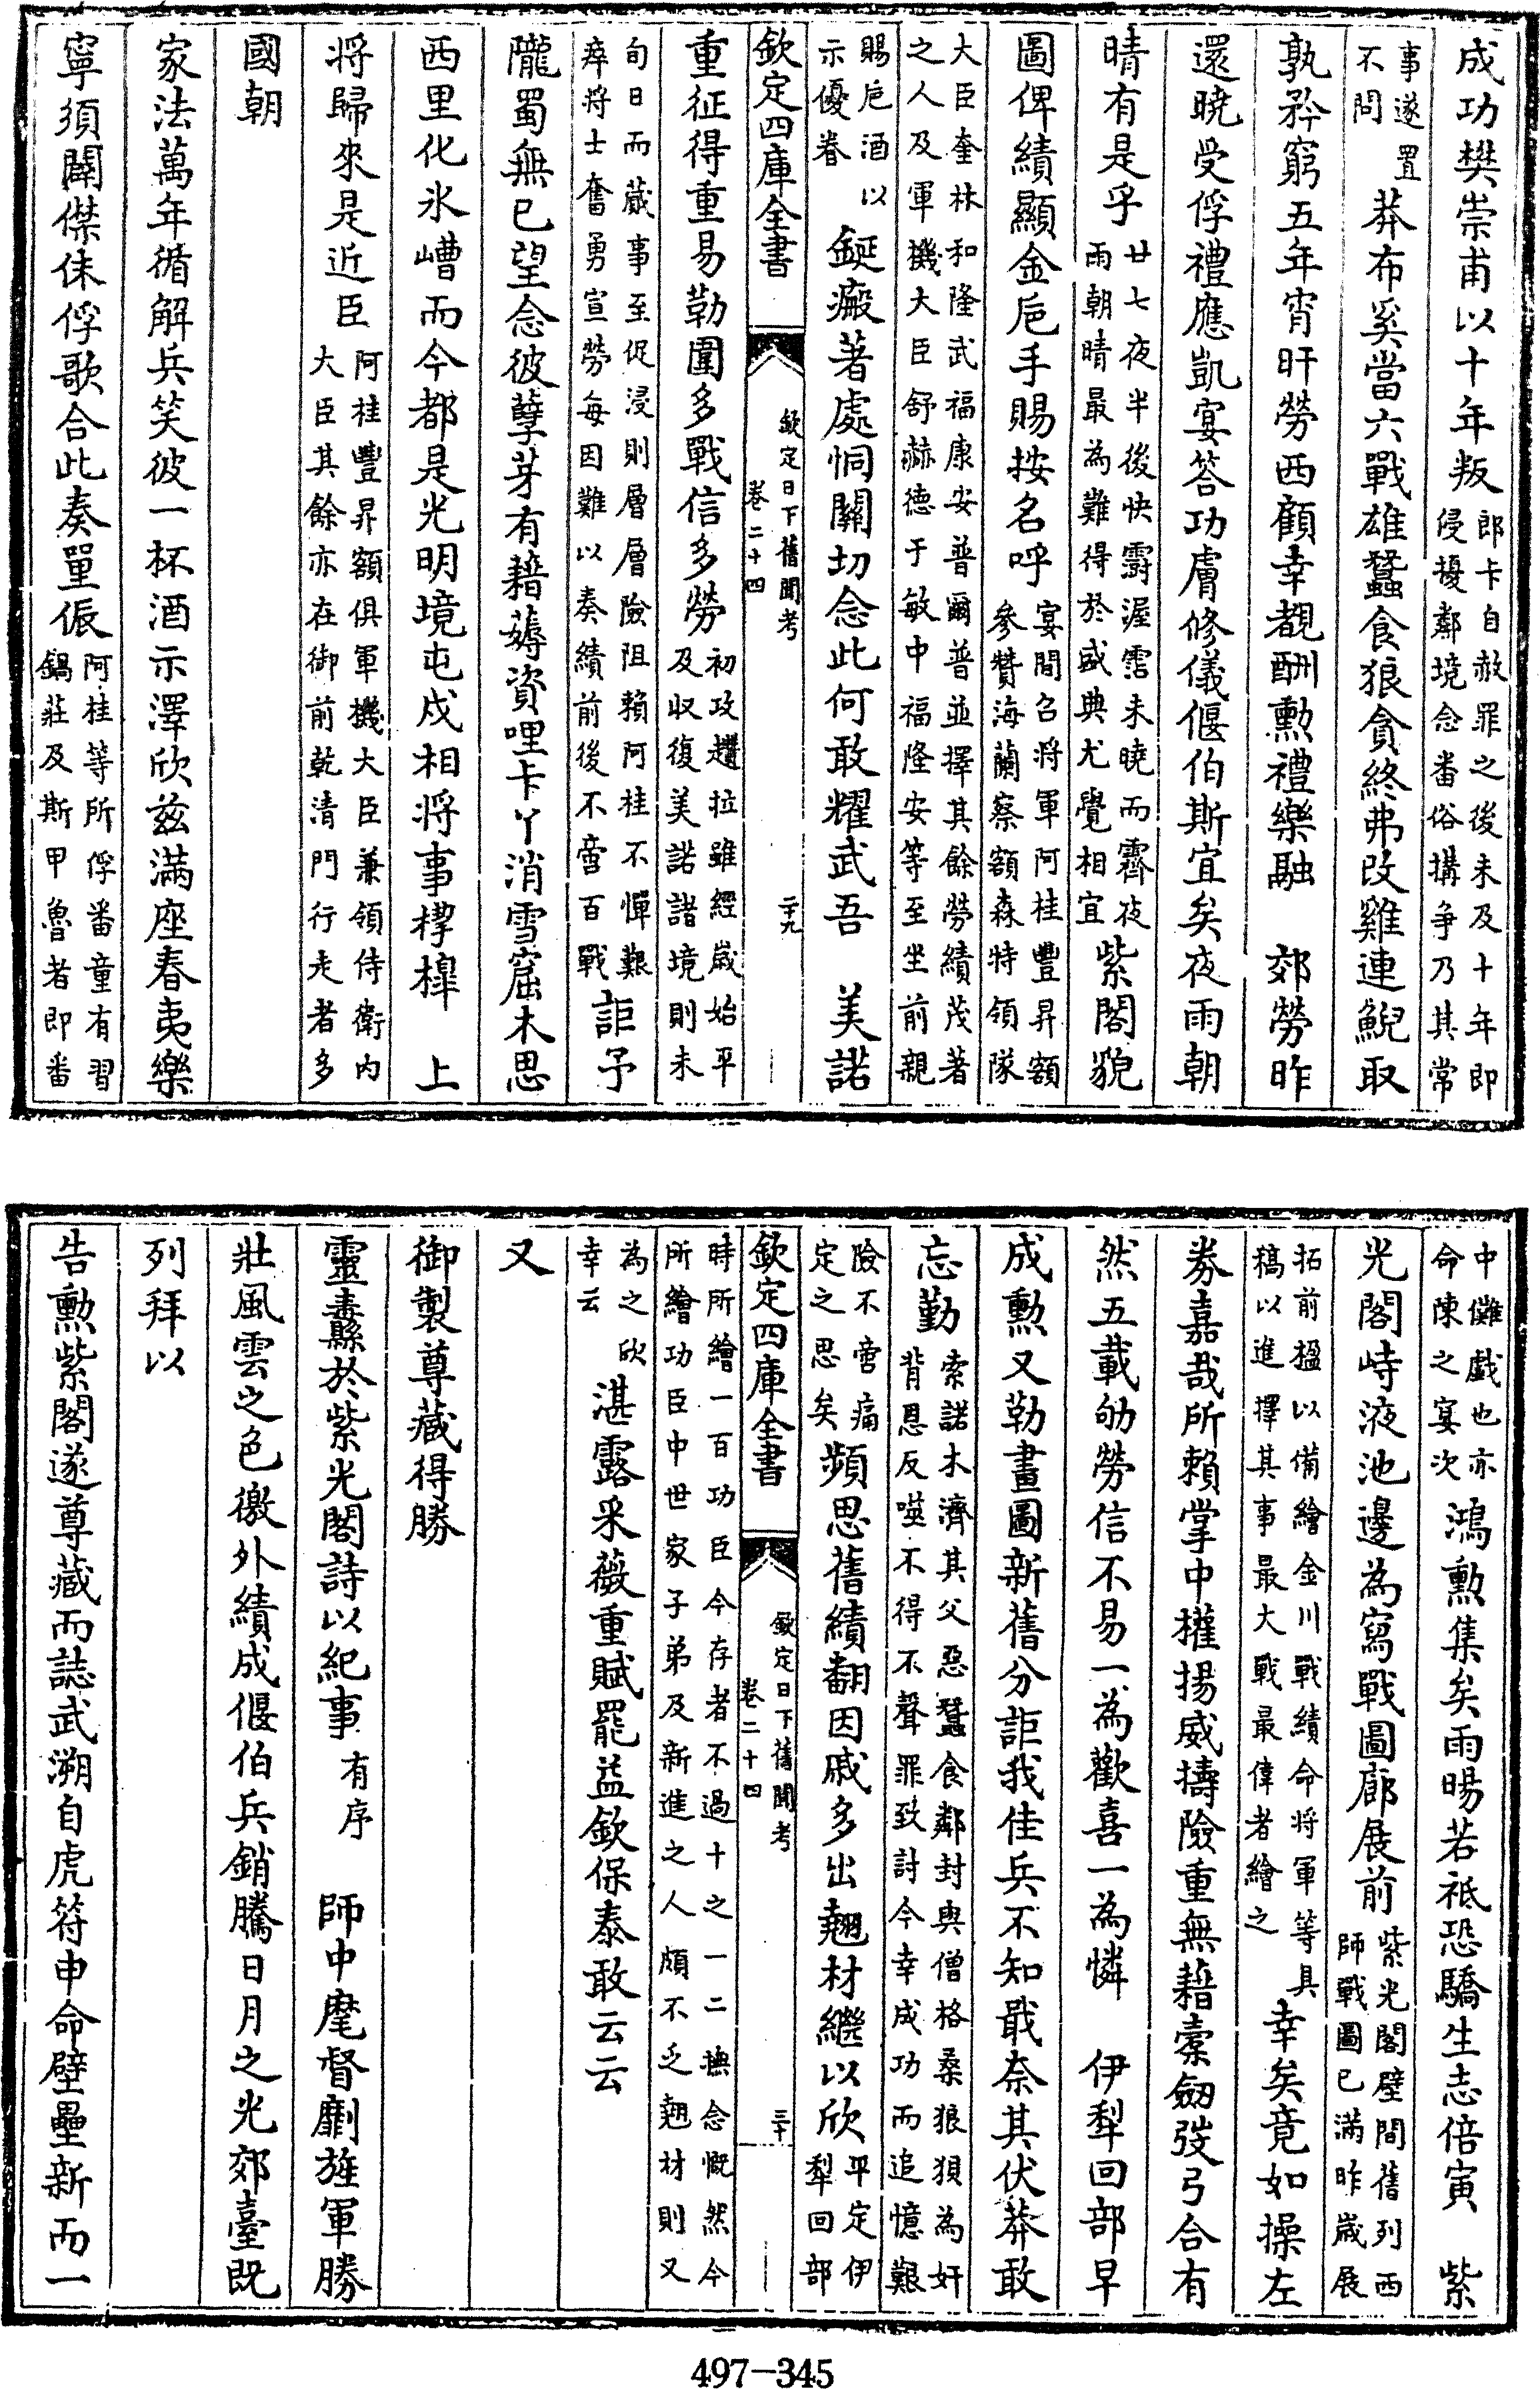 成功樊崇甫以十年叛郎卡自赦罪之後未及十年即侵擾鄰境念畨俗搆争乃其常
事遂置不問莽布奚當六戰雄蠶食狼貪終弗改雞連鯢取
孰矜窮五年宵旰勞西顧幸覩酬勲禮樂融　郊勞昨
還曉受俘禮應凱宴答功膚修儀偃伯斯宜矣夜雨朝
晴有是乎廿七夜半後快霨渥霑未曉而霽夜雨朝晴最為難得於盛典尤覺相宜紫閣貌
圖俾績顯金巵手賜按名呼宴間召将軍阿桂豐昇額參贊海蘭察額森特領隊
大臣奎林和隆武福康安普爾普並擇其餘勞績茂著之人及軍機大臣舒赫德于敏中福隆安等至坐前親
賜巵酒以示優眷鋋瘢著處恫關切念此何敢耀武吾　美諾
欽定四庫全書　欽定日下舊聞考　卷二十四　二十九
重征得重易勒圍多戰信多勞初攻趲拉雖經嵗始平及収復美諾諸境則未
旬日而蕆事至促浸則層層險阻賴阿桂不憚艱瘁将士奮勇宣勞每因難以奏績前後不啻百戰詎予
隴蜀無已望念彼孽芽有藉薅資哩卡丫消雪窟木思
西里化氷嶆而今都是光明境屯戍相将事樼檡　上
将歸來是近臣阿桂豐昇額俱軍機大臣兼領侍衛内大臣其餘亦在御前乾清門行走者多
國朝
家法萬年循解兵笑彼一杯酒示澤欣兹滿座春夷樂
寧須關傑侏俘歌合此奏單侲阿桂等所俘畨童有習鍋莊及斯甲魯者即畨
中儺戯也亦命陳之宴次鴻勲集矣雨暘若祗恐驕生志倍寅　紫
光閣峙液池邊為寫戰圖廊展前紫光閣壁間舊列西師戰圖已滿昨嵗展
拓前楹以備繪金川戰績命将軍等具稿以進擇其事最大戰最偉者繪之幸矣竟如操左
券嘉哉所賴掌中權揚威擣險重無藉橐劒弢弓合有
然五載劬勞信不易一為歡喜一為憐　伊犁回部早
成勲又勒畫圖新舊分詎我佳兵不知戢奈其伏莽敢
忘勤索諾木濟其父惡蠶食鄰封與僧格桑狼狽為奸背恩反噬不得不聲罪致討今幸成功而追憶艱
險不啻痛定之思矣頻思舊績翻因戚多出翹材繼以欣平定伊犁回部
欽定四庫全書　欽定日下舊聞考　卷二十四　三十
時所繪一百功臣今存者不過十之一二撫念慨然今所繪功臣中世家子弟及新進之人頗不乏翹材則又
為之欣幸云湛露采薇重賦罷益欽保泰敢云云
又
御製尊藏得勝
靈纛於紫光閣詩以紀事有序　師中麾督劘旌軍勝
壯風雲之色徼外績成偃伯兵銷騰日月之光郊臺既
列拜以
告勲紫閣遂尊藏而誌武溯自虎符申命壁壘新而一
497-345